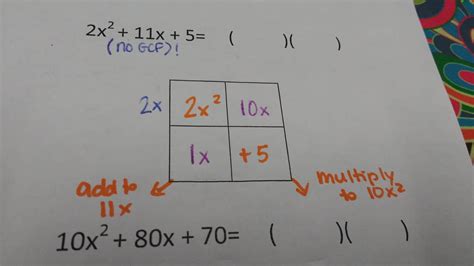 2x² + 11x + 5= (      )(      )
(no GCF)!
2x 2x² 10x
1x +5
add to
11x
multiply
to 10x²
10x² + 80x + 70= (      )(      )